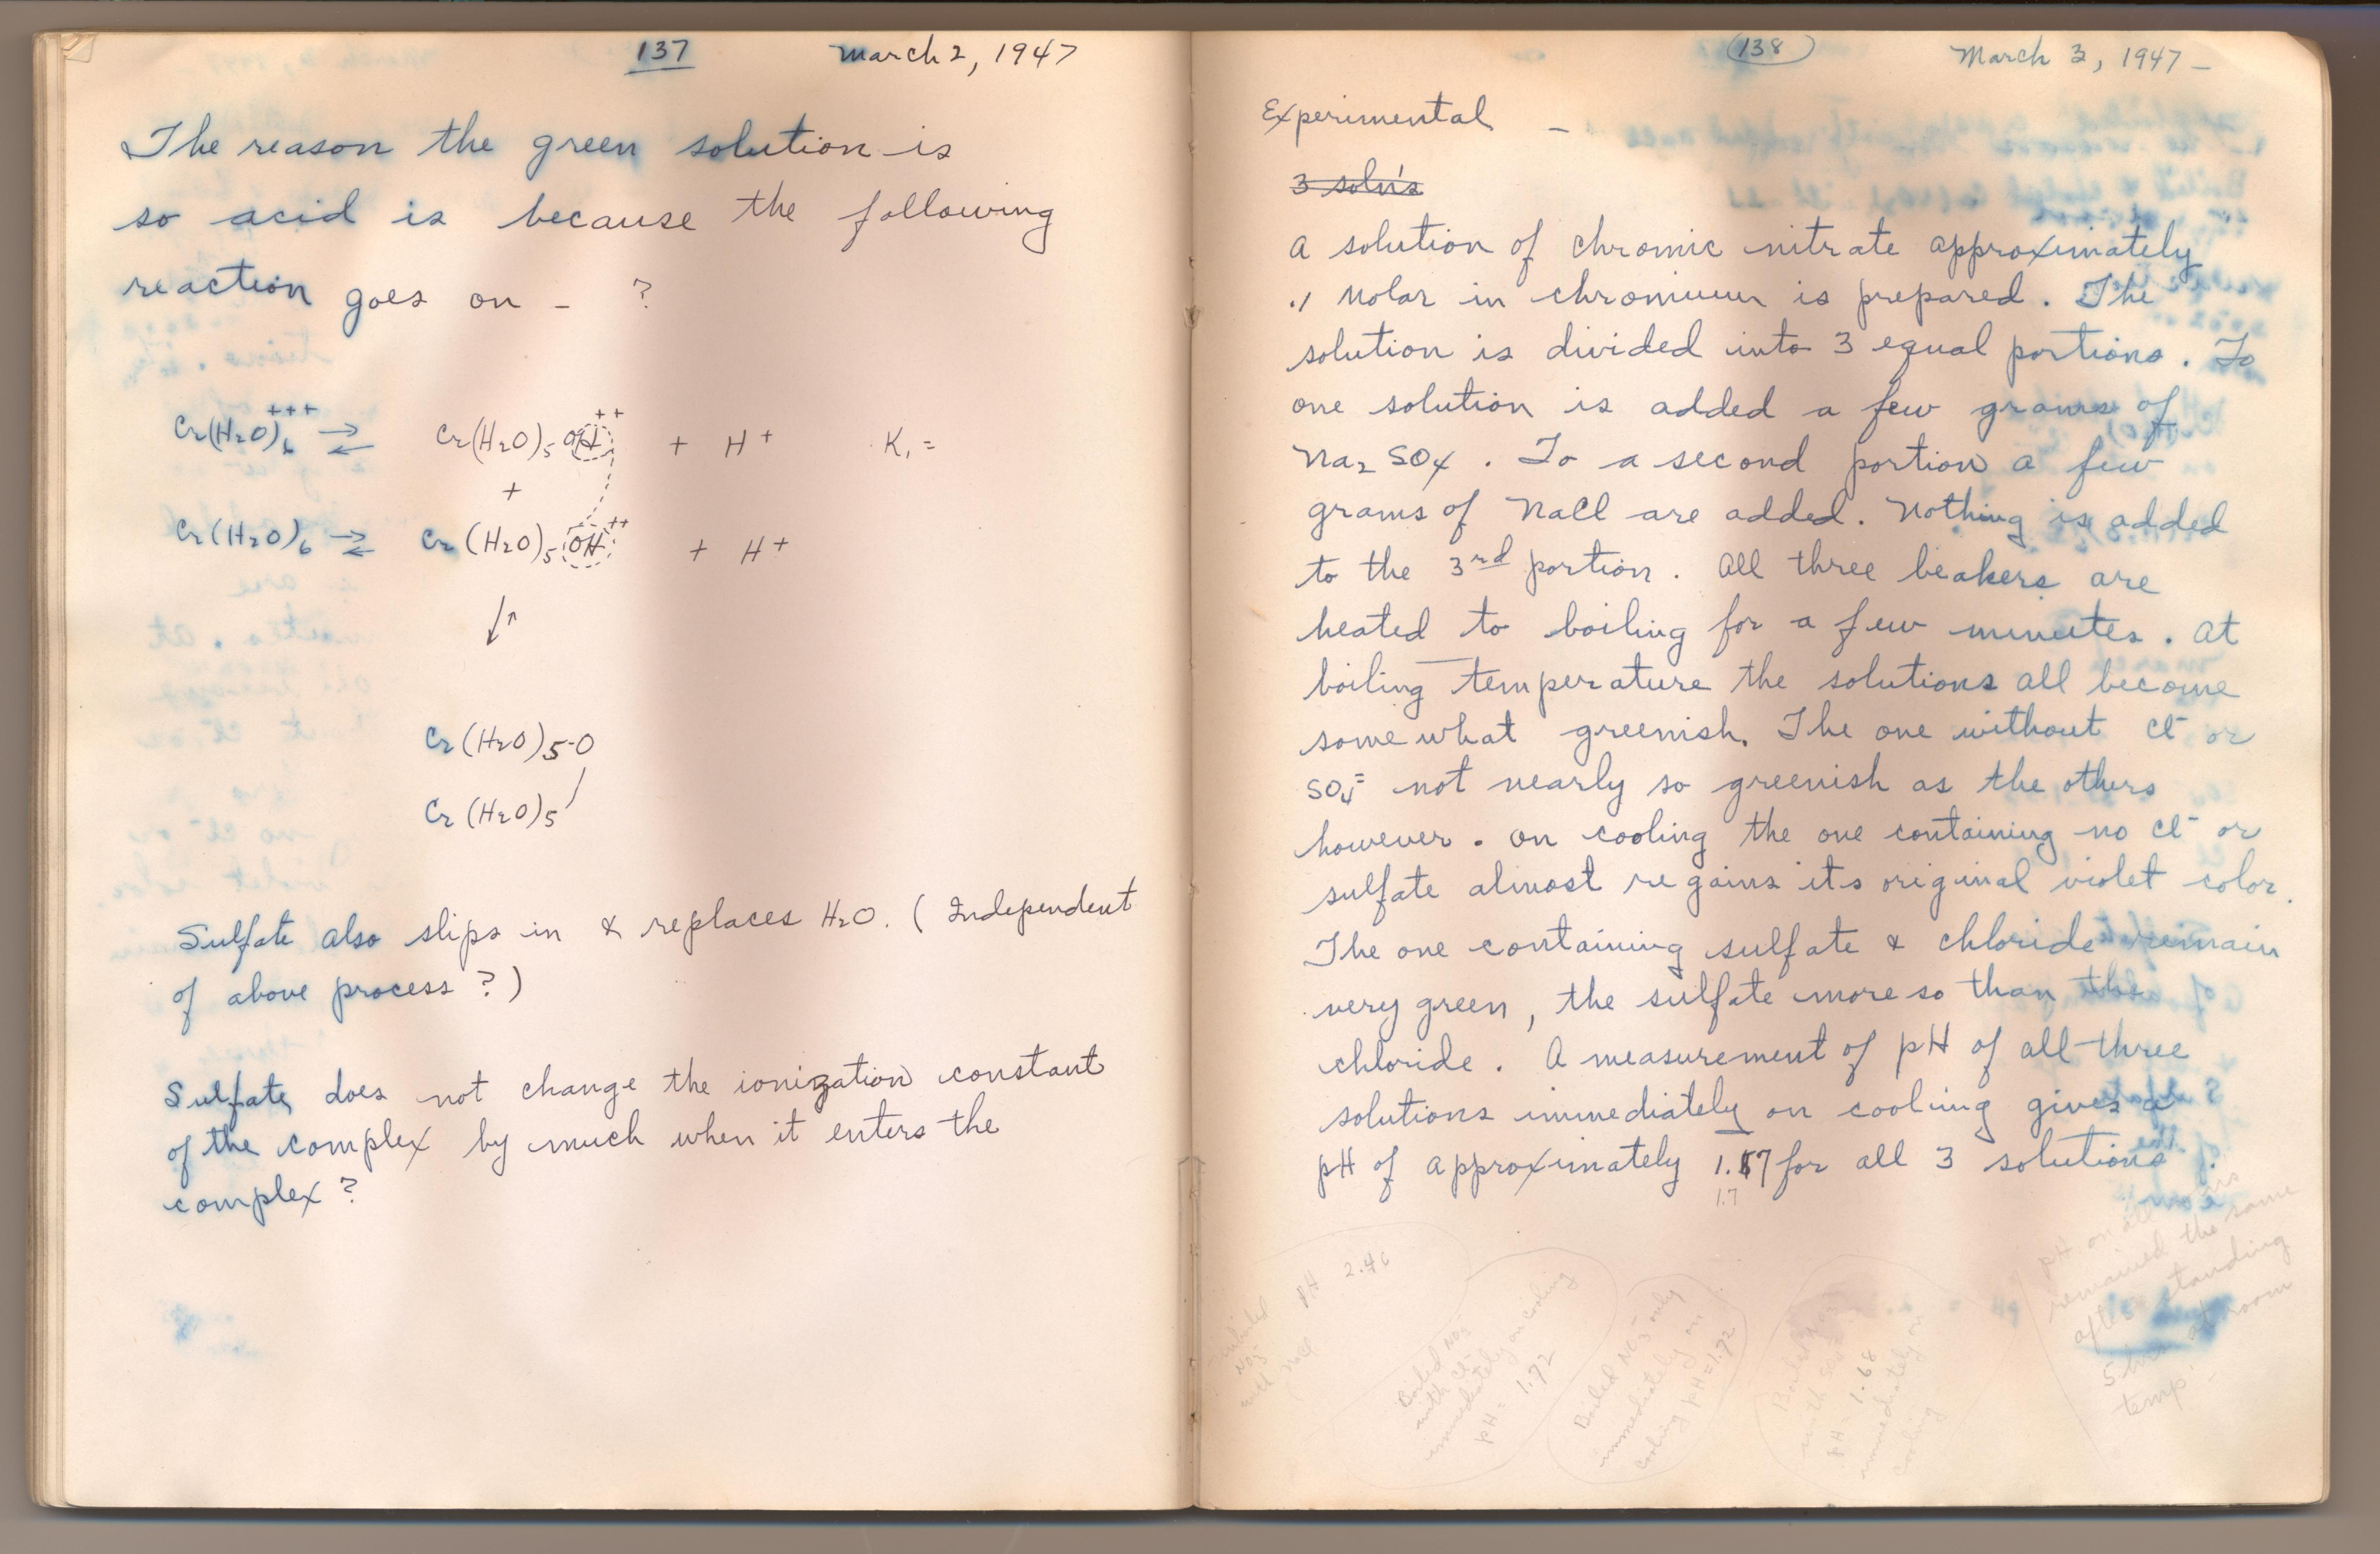 137 March 2, 1947
The reason the green solution is
so acid is because the following
reaction goes on - ?
Cr(H2O)6+++ ⇌ Cr(H2O)5 OH++ + H+ K1 =
+
Cr(H2O)6 ⇌ Cr(H2O)5 OH++ + H+
↓↑
Cr(H2O)5-O
Cr(H2O)5/
Sulfate also slips in & replaces H2O. (Independent
of above process?)
Sulfate does not change the ionization constant
of the complex by much when it enters the
complex?
138 March 3, 1947 -
Experimental -
3 soln's
A solution of chromic nitrate approximately
.1 molar in chromium is prepared. The
solution is divided into 3 equal portions. To
one solution is added a few grams of
Na2SO4. To a second portion a few
grams of NaCl are added. Nothing is added
to the 3rd portion. All three beakers are
heated to boiling for a few minutes. At
boiling temperature the solutions all become
somewhat greenish. The one without Cl- or
SO4= not nearly so greenish as the others
however. On cooling the one containing no Cl- or
sulfate almost regains its original violet color.
The one containing sulfate & chloride remain
very green, the sulfate more so than the
chloride. A measurement of pH of all three
solutions immediately on cooling gives a
pH of approximately 1.7 for all 3 solutions.
1.7
NO3-
with NaCl
pH 2.46
Boiled NO3-
with Cl-
immediately on cooling
pH = 1.72
Boiled NO3- only
immediately on
cooling pH = 1.72
Boiled NO3-
with SO4=
pH = 1.68
immediately on
cooling
pH on all
remained the same
after standing
5 hrs at room
temp.